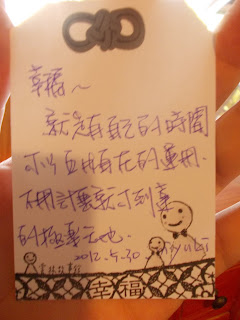 幸福~
就是有自己的時間
可以自由自在的運用.
不用計畫就可到東
的極樂之地.
2012.5.30
幸福